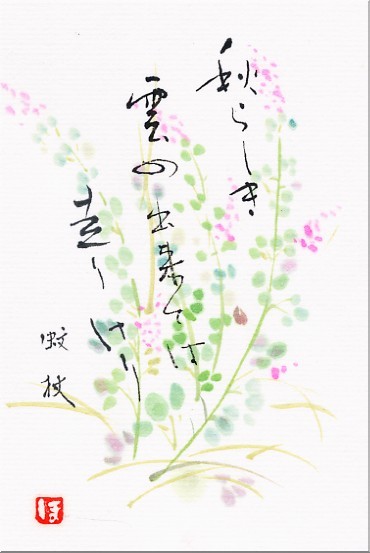 秋らしき
雲の出来ては
走りけり
蚊杖
ほ